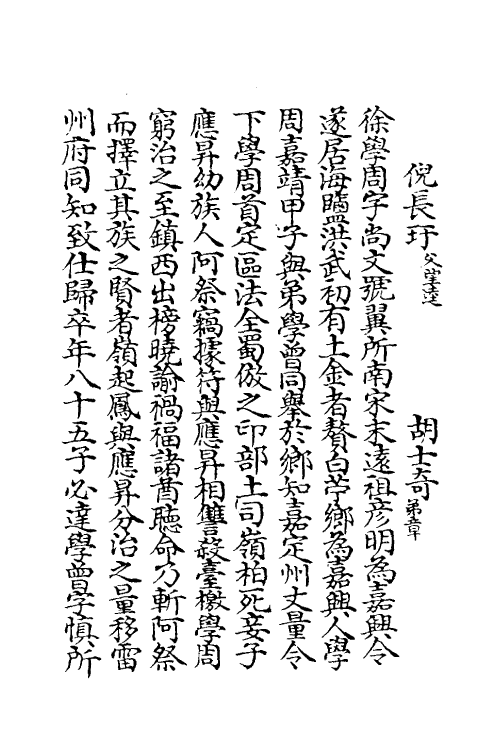 倪長玗父壁達 胡士奇弟章
徐學周字尚文號翼所南宋末遠祖彦明為嘉興令
遂居海鹽洪武初有士金者贅白苧鄉為嘉興人學
周嘉靖甲子與弟學曾同舉於鄉知嘉定州丈量令
下學周首定區法全蜀倣之印部土司嶺柏死妾子
應昇幼族人阿祭竊據符與應昇相讐殺臺檄學周
窮治之至鎮西出榜曉諭禍福諸酋聽命乃斬阿祭
而擇立其族之賢者嶺起鳳與應昇分治之量移雷
州府同知致仕歸卒年八十五子必達學曾字慎所